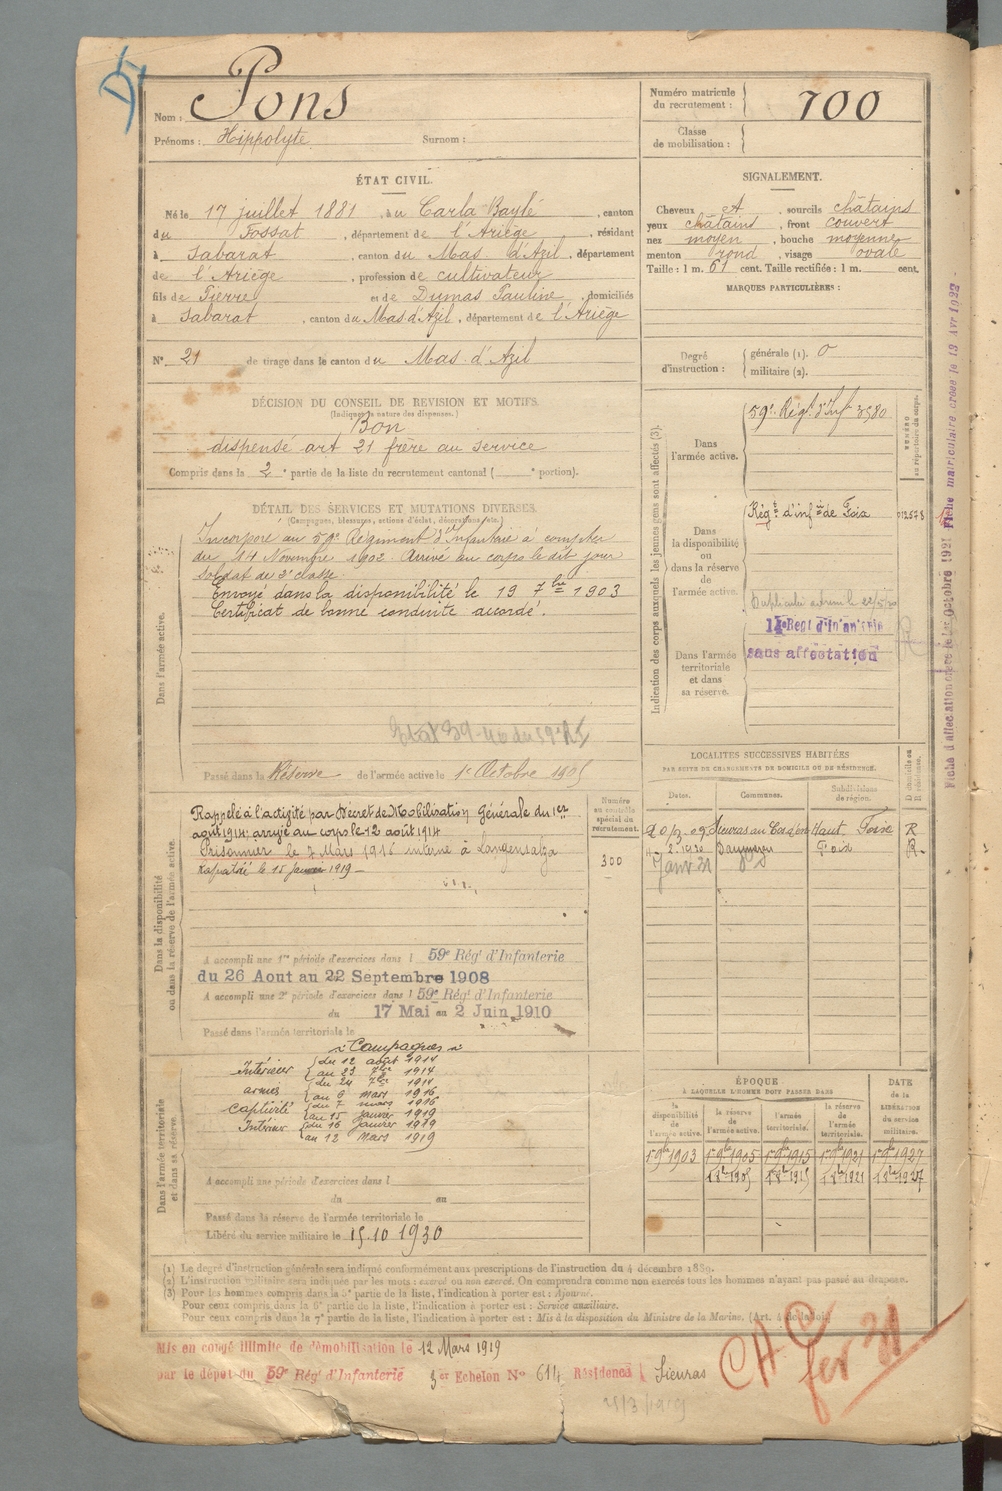 Nom : Pons
Prénoms : Hippolyte Surnom :
Numéro matricule du recrutement : 700
Classe de mobilisation :
ÉTAT CIVIL.
Né le 17 juillet 1881, à u Carla Baylé, canton
du Fossat, département de l'Ariège, résidant
à Sabarat, canton du Mas d'Azil, département
de l'Ariège, profession de cultivateur
fils de Pierre et de Dumas Pauline, domiciliés
à Sabarat, canton du Mas d'Azil, département de l'Ariège
N° 21 de tirage dans le canton du Mas d'Azil
SIGNALEMENT.
Cheveux et, sourcils châtains
yeux châtains, front couvert
nez moyen, bouche moyenne
menton rond, visage ovale
Taille : 1 m. 61 cent. Taille rectifiée : 1 m. cent.
MARQUES PARTICULIÈRES :
Degré d'instruction : générale (1). 0
militaire (2).
DÉCISION DU CONSEIL DE REVISION ET MOTIFS.
(Indiquer la nature des dispenses.)
Bon
dispensé art 21 frère au service
Compris dans la 2e partie de la liste du recrutement cantonal ( e portion).
DÉTAIL DES SERVICES ET MUTATIONS DIVERSES.
(Campagnes, blessures, actions d'éclat, décorations, etc.)
Dans l'armée active.
Incorporé au 59e Régiment d'Infanterie à compter
du 14 Novembre 1902 Arrivé au corps le dit jour
Soldat de 2e classe
Envoyé dans la disponibilité le 19 7bre 1903
Certificat de bonne conduite accordé.
Passé dans la Réserve de l'armée active le 1er Octobre 1905
Indication des corps auxquels les jeunes gens sont affectés (3).
Dans l'armée active.
59e Régt d'Inf 3580
NUMÉRO au répertoire du corps.
Dans la disponibilité ou dans la réserve de l'armée active.
Régt d'infie de Foix 012578
Dans l'armée territoriale et dans sa réserve.
14e Regt d'infanterie
sans affectation
Fiche d'affectation créée le 1er Octobre 1921 Fiche matriculaire créée le 13 Avr 1922
LOCALITÉS SUCCESSIVES HABITÉES
PAR SUITE DE CHANGEMENTS DE DOMICILE OU DE RÉSIDENCE.
Dates. Communes. Subdivisions de région. D domicile ou R résidence.
20/2.09 Sieuras Foix R
2.1930 Daumazan Foix R
Janv 31
Dans la disponibilité ou dans la réserve de l'armée active.
Numéro au contrôle spécial du recrutement.
300
Rappelé à l'activité par Décret de Mobilisation Générale du 1er
août 1914; arrivé au corps le 12 août 1914
Prisonnier le 7 Mars 1916 interné à Langensalza
Rapatrié le 15 janvier 1919
A accompli une 1re période d'exercices dans l 59e Rég' d'Infanterie
du 26 Aout au 22 Septembre 1908
A accompli une 2e période d'exercices dans l 59e Rég' d'Infanterie
du 17 Mai au 2 Juin 1910
Passé dans l'armée territoriale le
Dans l'armée territoriale et dans sa réserve.
Campagnes
Intérieur du 12 août 1914
au 23 7bre 1914
armées du 24 7bre 1914
au 6 mars 1916
captivité du 7 mars 1916
au 15 janvier 1919
Intérieur du 16 janvier 1919
au 12 Mars 1919
A accompli une période d'exercices dans l
du au
Passé dans la réserve de l'armée territoriale le
Libéré du service militaire le 15.10 1930
ÉPOQUE
À LAQUELLE L'HOMME DOIT PASSER DANS
DATE de la LIBÉRATION du service militaire.
la disponibilité de l'armée active. la réserve de l'armée active. l'armée territoriale. la réserve de l'armée territoriale.
1 9bre 1903 1 9bre 1905 1 9bre 1915 1 9bre 1921 1 9bre 1927
1 8bre 1905 1 8bre 1915 1 8bre 1921 1 8bre 1927
(1) Le degré d'instruction générale sera indiqué conformément aux prescriptions de l'instruction du 4 décembre 1889.
(2) L'instruction militaire sera indiquée par les mots : exercé ou non exercé. On comprendra comme non exercés tous les hommes n'ayant pas passé au drapeau.
(3) Pour les hommes compris dans la 5e partie de la liste, l'indication à porter est : Ajourné.
Pour ceux compris dans la 6e partie de la liste, l'indication à porter est : Service auxiliaire.
Pour ceux compris dans la 7e partie de la liste, l'indication à porter est : Mis à la disposition du Ministre de la Marine. (Art. 4 de la loi.)
Mis en congé illimité de démobilisation le 12 Mars 1919
par le dépôt du 59e Rég' d'Infanterie 3er Echelon N° 614 Résidence Sieuras
25/3/1919